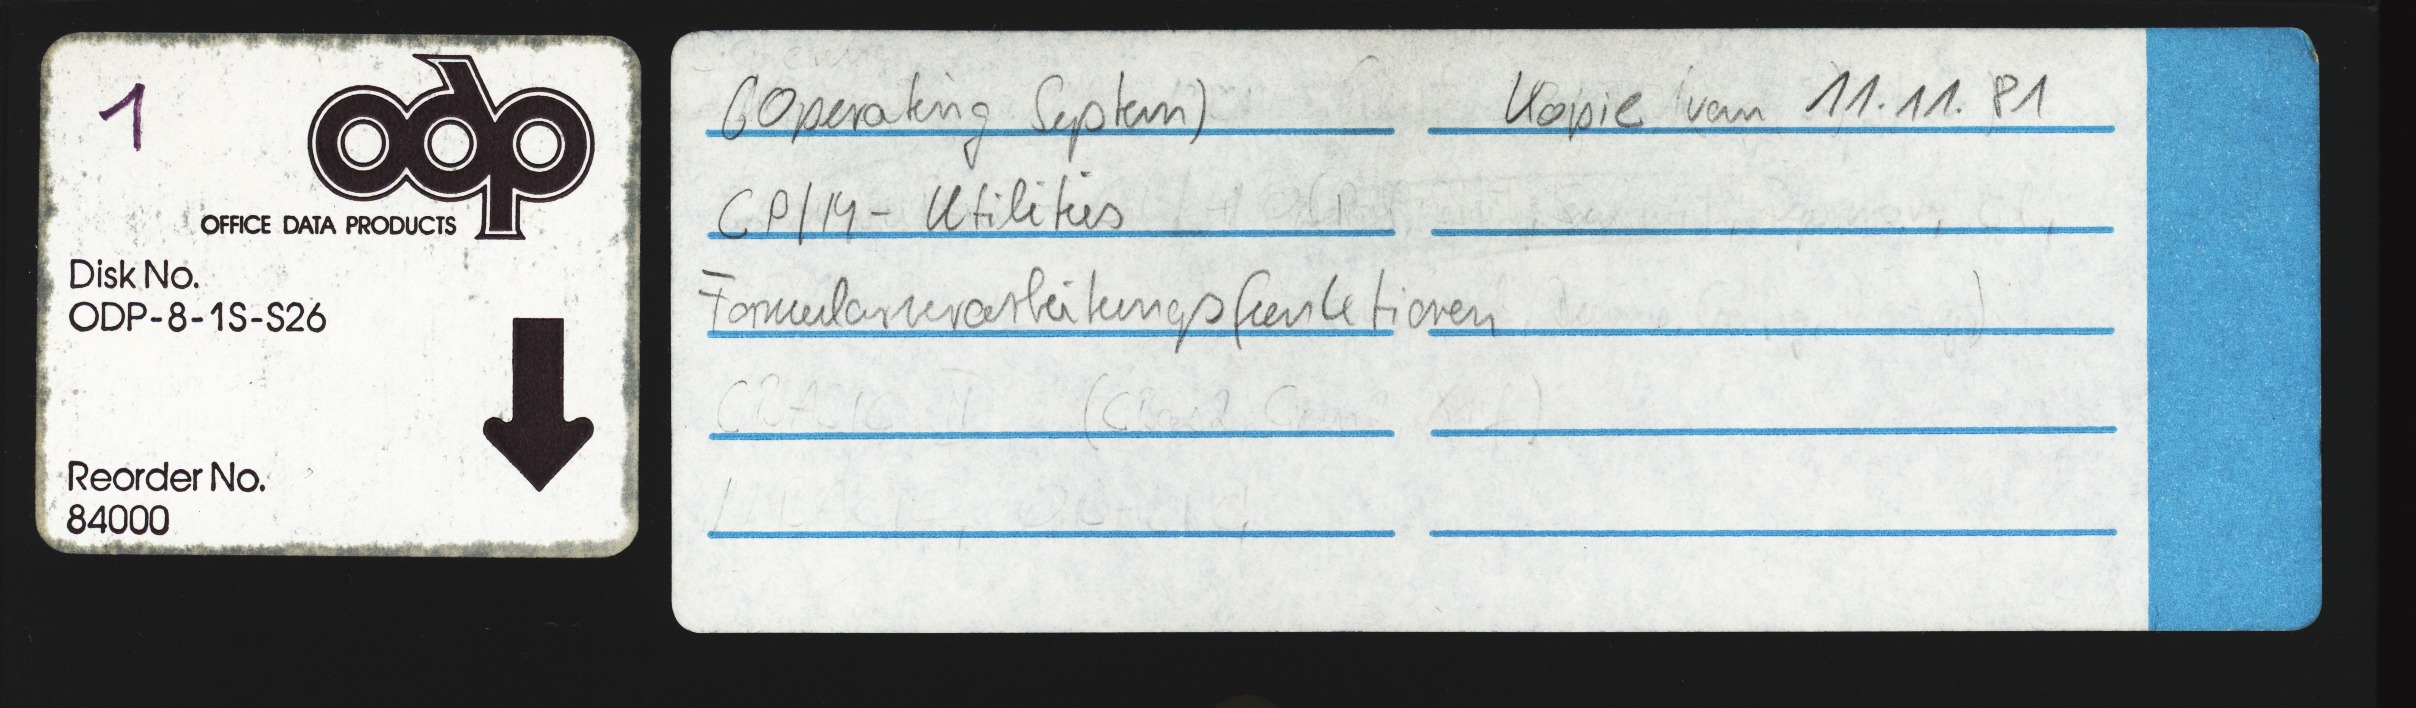 1
odp
OFFICE DATA PRODUCTS
Disk No.
ODP-8-1S-S26
Reorder No.
84000
(Operating System) Kopie vom 11.11.81
CP/M - Utilities
Formularverarbeitungsfunktionen